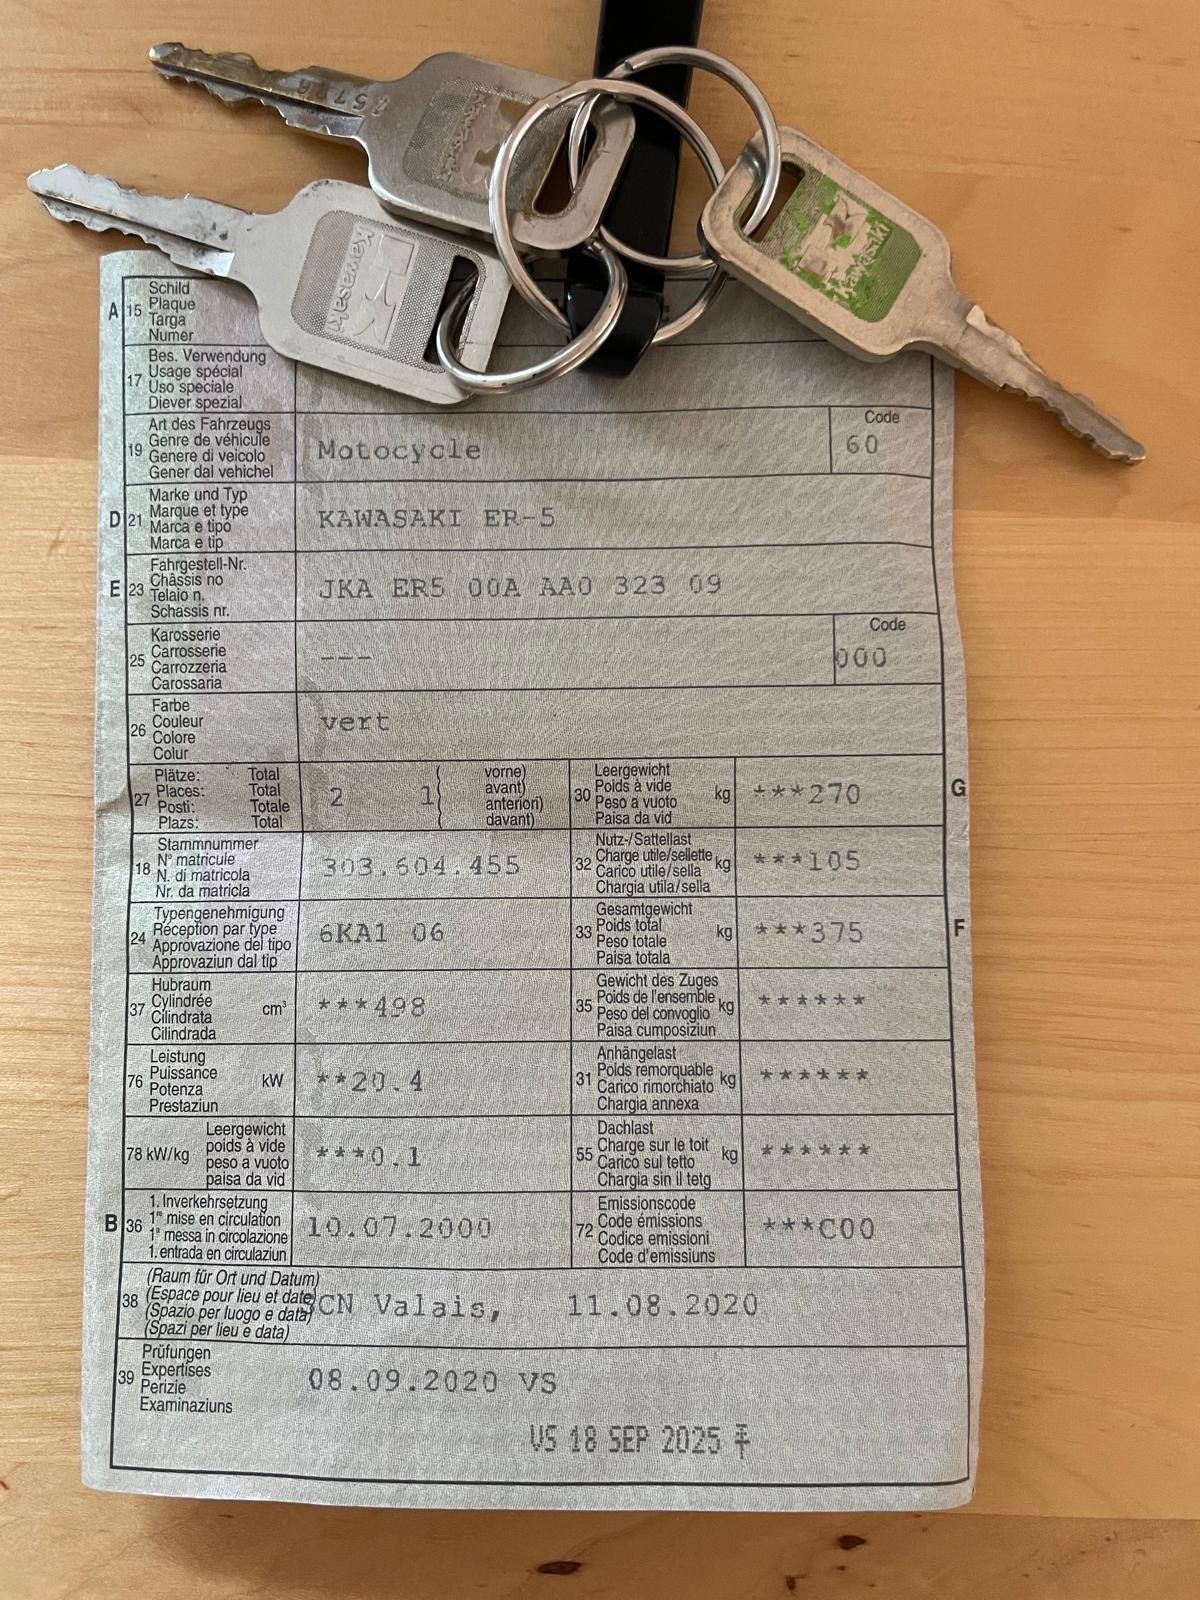 7571B
Kawasaki
Kawasaki
Kawasaki
A 15 Schild
Plaque
Targa
Numer
17 Bes. Verwendung
Usage spécial
Uso speciale
Diever spezial
19 Art des Fahrzeugs
Genre de véhicule
Genere di veicolo
Gener dal vehichel
Motocycle
Code
60
D 21 Marke und Typ
Marque et type
Marca e tipo
Marca e tip
KAWASAKI ER-5
E 23 Fahrgestell-Nr.
Châssis no
Telaio n.
Schassis nr.
JKA ER5 00A AA0 323 09
25 Karosserie
Carrosserie
Carrozzeria
Carossaria
---
Code
000
26 Farbe
Couleur
Colore
Colur
vert
27 Plätze: Total
Places: Total
Posti: Totale
Plazs: Total
2 1( vorne)
( avant)
( anteriori)
( davant)
30 Leergewicht
Poids à vide
Peso a vuoto
Paisa da vid
kg ***270 G
18 Stammnummer
N° matricule
N. di matricola
Nr. da matricla
303.604.455
32 Nutz-/Sattellast
Charge utile/sellette
Carico utile/sella
Chargia utila/sella
kg ***105
24 Typengenehmigung
Réception par type
Approvazione del tipo
Approvaziun dal tip
6KA1 06
33 Gesamtgewicht
Poids total
Peso totale
Paisa totala
kg ***375 F
37 Hubraum
Cylindrée
Cilindrata
Cilindrada
cm³ ***498
35 Gewicht des Zuges
Poids de l'ensemble
Peso del convoglio
Paisa cumposiziun
kg ******
76 Leistung
Puissance
Potenza
Prestaziun
kW **20.4
31 Anhängelast
Poids remorquable
Carico rimorchiato
Chargia annexa
kg ******
78 kW/kg Leergewicht
poids à vide
peso a vuoto
paisa da vid
***0.1
55 Dachlast
Charge sur le toit
Carico sul tetto
Chargia sin il tetg
kg ******
B 36 1. Inverkehrsetzung
1re mise en circulation
1a messa in circolazione
1. entrada en circulaziun
10.07.2000
72 Emissionscode
Code émissions
Codice emissioni
Code d'emissiuns
***C00
38 (Raum für Ort und Datum)
(Espace pour lieu et date)
(Spazio per luogo e data)
(Spazi per lieu e data)
SCN Valais, 11.08.2020
39 Prüfungen
Expertises
Perizie
Examinaziuns
08.09.2020 VS
VS 18 SEP 2025